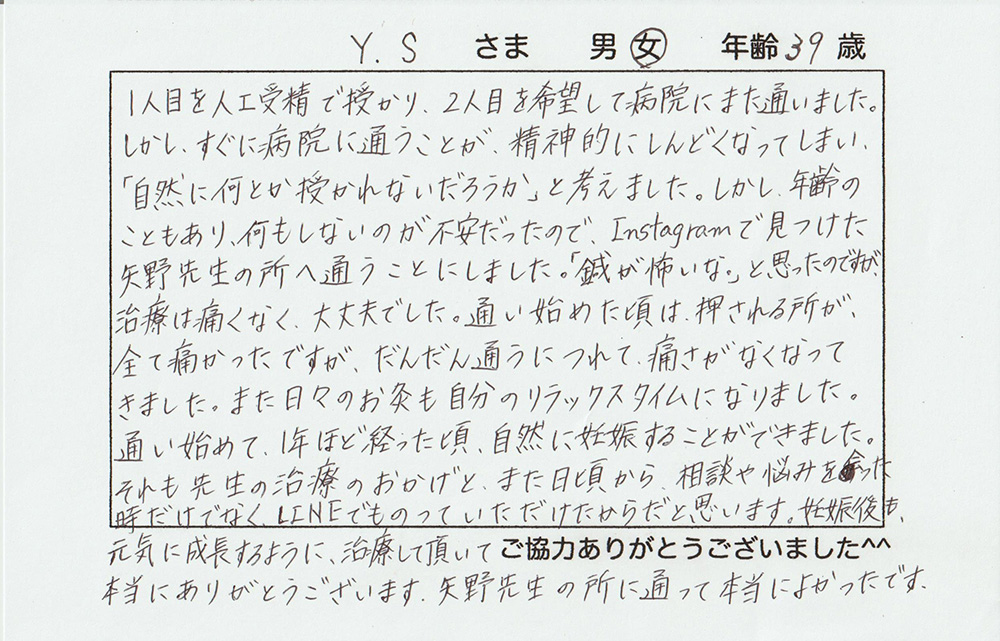 Y.S さま 男 女 年齢 39 歳
1人目を人工受精で授かり、2人目を希望して病院にまた通いました。
しかし、すぐに病院に通うことが、精神的にしんどくなってしまい、
「自然に何とか授かれないだろうか」と考えました。しかし、年齢の
こともあり、何もしないのが不安だったので、Instagramで見つけた
矢野先生の所へ通うことにしました。「鍼が怖いな。」と思ったのですが、
治療は痛くなく、大丈夫でした。通い始めた頃は、押される所が、
全て痛かったですが、だんだん通うにつれて、痛さがなくなって
きました。また日々のお灸も自分のリラックスタイムになりました。
通い始めて、1年ほど経った頃、自然に妊娠することができました。
それも先生の治療のおかげと、また日頃から、相談や悩みを会った
時だけでなく、LINEでものっていただけたからだと思います。妊娠後も、
元気に成長するように、治療して頂いて ご協力ありがとうございました^^
本当にありがとうございます。矢野先生の所に通って本当によかったです。